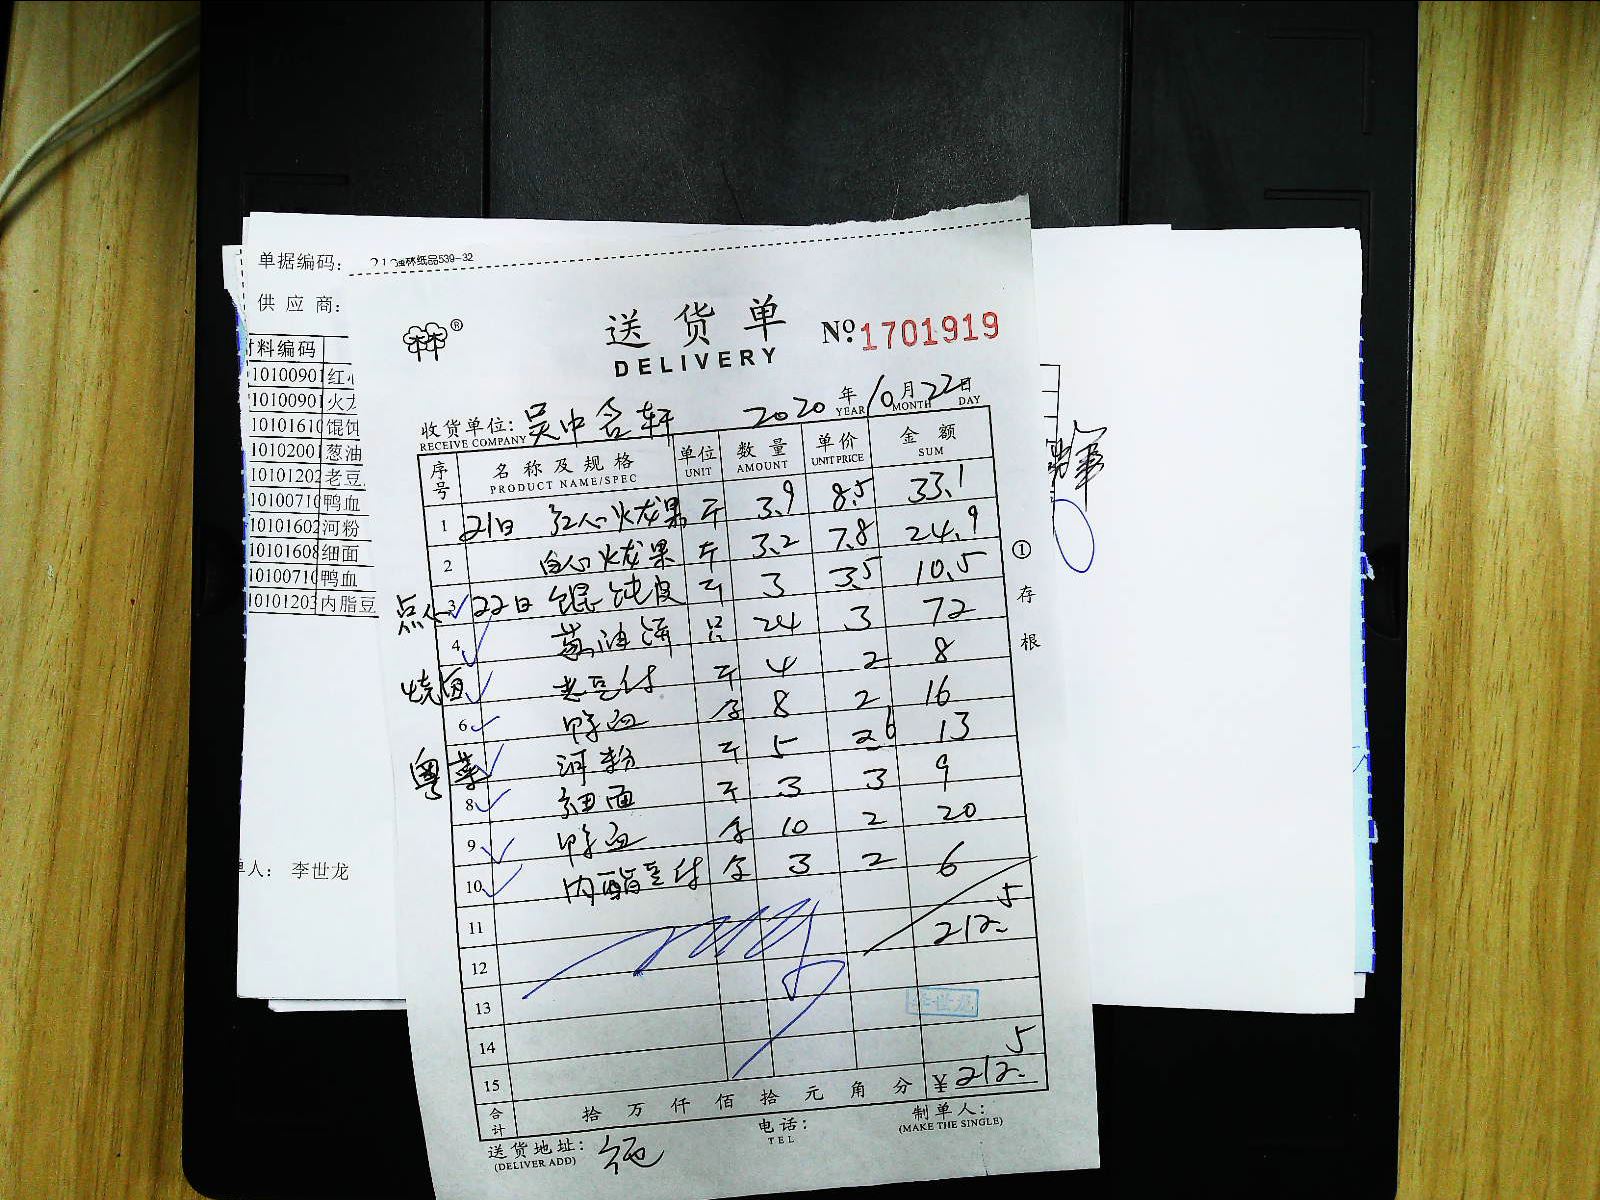 单据编码:
强林纸品539-32
供 应 商:
材料编码
10100901 红心
10100901 火龙
10101610 馄饨
10102001 葱油
10101202 老豆
10100710 鸭血
10101602 河粉
10101608 细面
10100710 鸭血
10101203 内脂豆
单人: 李世龙
送 货 单
DELIVERY
№ 1701919
收货单位: 吴中含轩 2020 年 10 月 22 日
RECEIVE COMPANY YEAR MONTH DAY
序号 名称及规格 单位 数量 单价 金额
PRODUCT NAME/SPEC UNIT AMOUNT UNIT PRICE SUM
1 21日 红心火龙果 斤 3.9 8.5 33.1
2 白心火龙果 斤 3.2 7.8 24.9
点心 3 22日 馄饨皮 斤 3 3.5 10.5
4 葱油饼 只 24 3 72
烧鱼 老豆付 斤 4 2 8
6 鸭血 合 8 2 16
粤菜 河粉 斤 5 2.6 13
8 细面 斤 3 3 9
9 鸭血 合 10 2 20
10 内酯豆付 合 3 2 6
11 212.5
12
13 李世龙
14
15
合计 拾 万 仟 佰 拾 元 角 分 ¥212.5
送货地址: 电话: 制单人:
(DELIVER ADD) TEL (MAKE THE SINGLE)
① 存 根